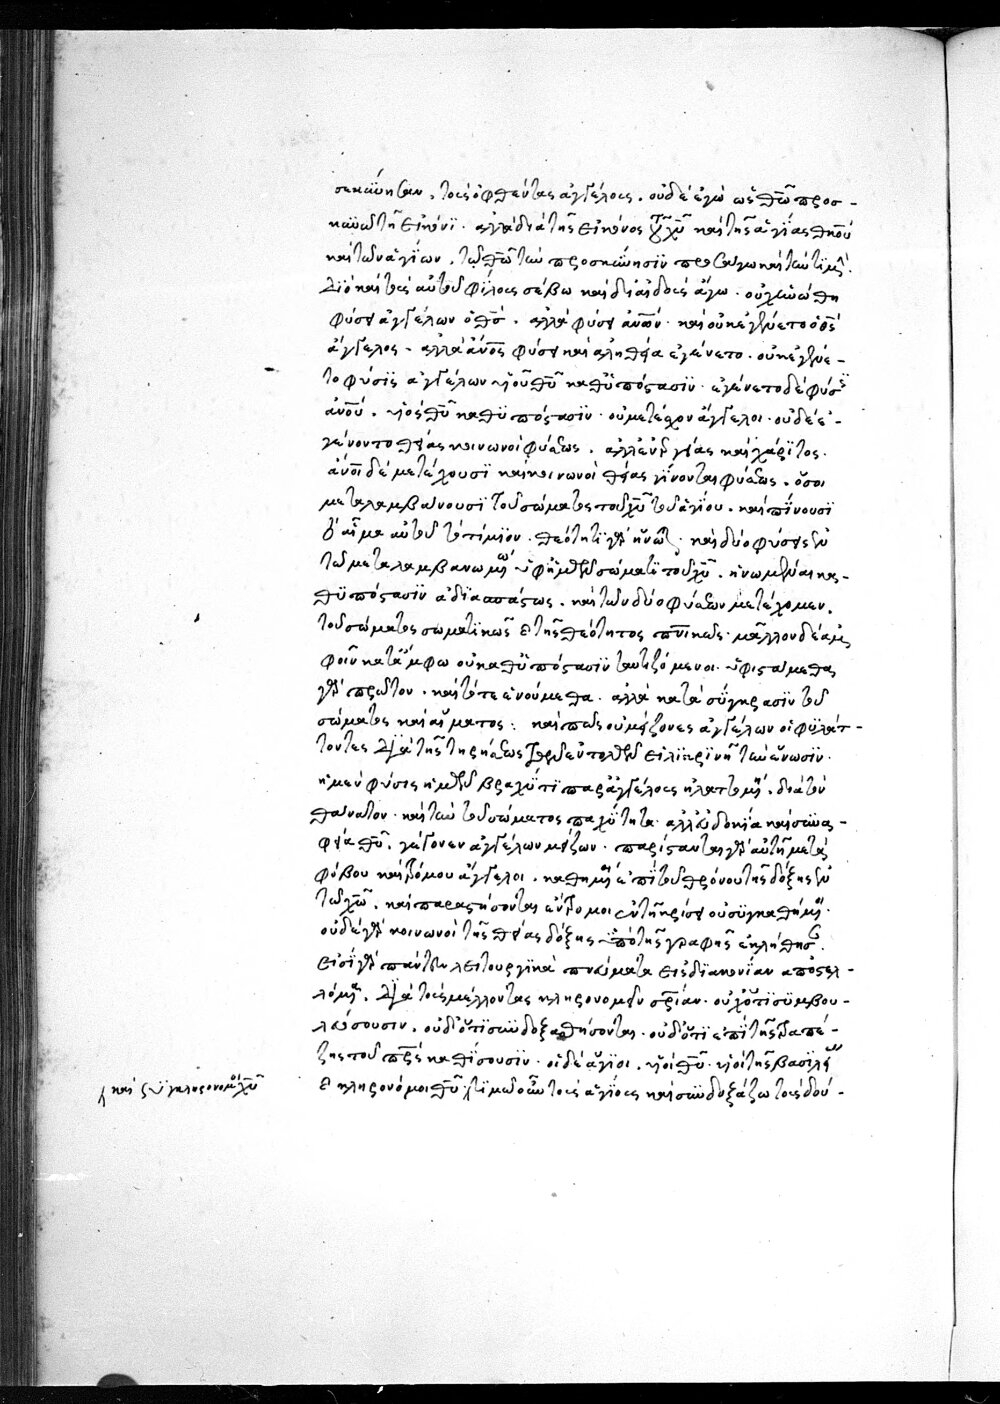 σεκύνησαν, τοὺς ὀφθέντας ἀγγέλους. οὐδὲ ἐγὼ ὡς θῶ προσ-
κυνῶ τῆ εἰκόνϊ. ἀλλὰ διὰ τῆς εἰκόνος τοῦ χῦ καὶ τῆς ἁγίας θκοῦ
καὶ τῶν ἁγίων, τῶ θῶ τὴν προσκύνησϊν προσάγω καὶ τὴν τϊμήν.
διὸ καὶ τοὺς αὐτοῦ φίλους σέβω καὶ δι' αἰδοῦς ἄγω. οὐχ ἡνώθη
φύσει ἀγγέλων ὁ θς. ἀλλὰ φύσει ἀνῶν. καὶ οὐκ ἐγένετο ὁ θς
ἄγγελος. ἀλλὰ ἄνος φύσει καὶ ἀληθεία ἐγένετο. οὐκ ἐγένε-
το φύσϊς ἀγγέλων υἱοῦ θῦ καθ' ὑπόστασϊν. ἐγένετο δὲ φύσϊς
ἀνοῦ, υἱὸς θῦ καθ' ὑπόστασϊν. οὐ μετέχον ἄγγελοι. οὐδὲ ἐ-
γένοντο θείας κοινωνοὶ φύσεως. ἀλλ' ἐνεργείας καὶ χάρϊτος.
ἄνοι δὲ μετέχουσϊ καὶ κοινωνοὶ θείας γίνονται φύσεως. ὅσοι
μεταλαμβάνουσϊ τοῦ σώματος τοῦ χῦ τοῦ ἁγίου. καὶ πίνουσϊ
τὸ αἷμα αὐτοῦ τὸ τίμϊον. θεότητϊ γὰρ ἥνωται. καὶ δύο φύσεις ἐν
τῶ μεταλαμβανομένω ὑφ' ἡμῶν σώματϊ τοῦ χῦ. ἡνωμέναι κα-
θ' ὑπόστασϊν ἀδϊασπάστως. καὶ τῶν δύο φύσεων μετέχομεν.
τοῦ σώματος σωματϊκῶς τῆς θεότητος πνϊκῶς. μᾶλλον δὲ ἀμ
φοῖν κατ' ἄμφω οὐ καθ' ὑπόστασϊν ταυτϊζόμενοι. ὑφιστάμεθα
γὰρ πρῶτον. καὶ τότε ἑνούμεθα. ἀλλὰ κατὰ σύγκρασϊν τοῦ
σώματος καὶ αἵματος: καὶ πῶς οὐ μείζονες ἀγγέλων οἱ φϋλάτ-
τοντες διὰ τῆς τηρήσεως τῶν ἐντολῶν εἰλϊκρϊνῆ τὴν ἕνωσϊν.
ἡ μὲν φύσις ἡμῶν βραχύ τϊ παρ' ἀγγέλους ἠλάττωται. διὰ τὸν
θάνατον. καὶ τὴν τοῦ σώματος παχύτητα. ἀλλ' εὐδοκία καὶ συνα-
φεία θῦ, γέγονεν ἀγγέλων μείζων. παρίστανται γὰρ αὐτῆ μετὰ
φόβου καὶ τρόμου ἄγγελοι. καθημένη ἐπὶ τοῦ θρόνου τῆς δόξης ἐν
τῶ χῶ. καὶ παραστήσονται ἔντρομοι ἐν τῆ κρίσει οὐ συγκαθήμενοι.
οὐδὲ γὰρ κοινωνοὶ τῆς θείας δόξης ὑπὸ τῆς γραφῆς ἐκλήθησαν.
εἰσὶ γὰρ πάντες λειτουργϊκὰ πνεύματα εἰς δϊακονίαν ἀποστελ-
λόμενα. διὰ τοὺς μέλλοντας κληρονομεῖν σρίαν. οὐχ ὅτϊ συμβα-
λεύσουσιν. οὐδ' ὅτϊ συνδοξασθήσονται. οὐδ' ὅτϊ ἐπὶ τῆς τραπέ-
ζης τοῦ πρς καθίσουσϊν. οἱ δὲ ἅγϊοι. υἱοὶ θῦ. υἱοὶ τῆς βασϊλείας
κληρονόμοι θῦ. τϊμῶ οὖν τοὺς ἁγίους καὶ συνδοξάζω τοὺς δού-
καὶ συγκληρονόμοι χῦ